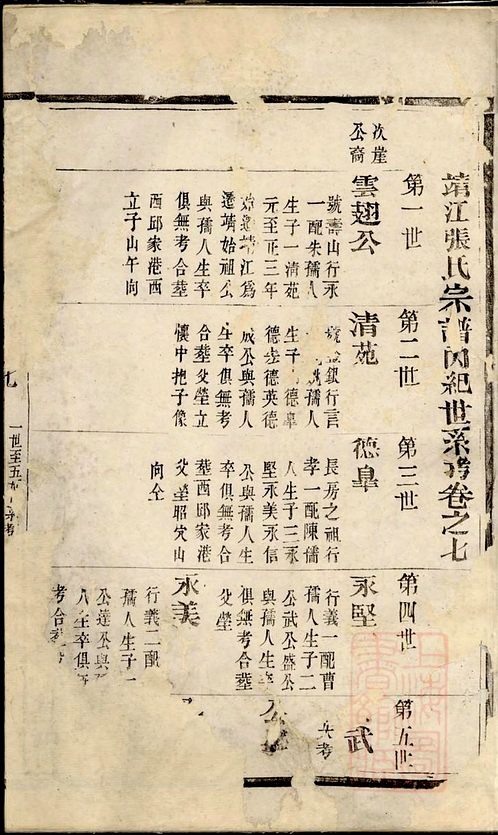 靖江張氏宗譜內紀世系考卷之七
第一世
第二世
第三世
第四世
第五世
次崖
公裔
雲翅公
號壽山行永
一配朱孺人
生子一清苑
元至正三年
始遷靖江爲
遷靖始祖公
與孺人生卒
俱無考合葬
西邱家港西
立子山午向
清苑
銀行言
孺人
生子 德臯
德 德英德
成公與孺人
生卒俱無考
合葬父塋立
懷中抱子像
德臯
長房之祖行
孝一配陳孺
人生子三永
堅永美永信
公與孺人生
卒俱無考合
葬西邱家港
父塋昭穴山
向仝
永堅
行義一配曹
孺人生子二
公武公盛公
與孺人生
俱無考合葬
父塋
永美
行義二配
孺人生子一
公達公與
人生卒俱
考合葬
武
考
公
七
一世至五 考